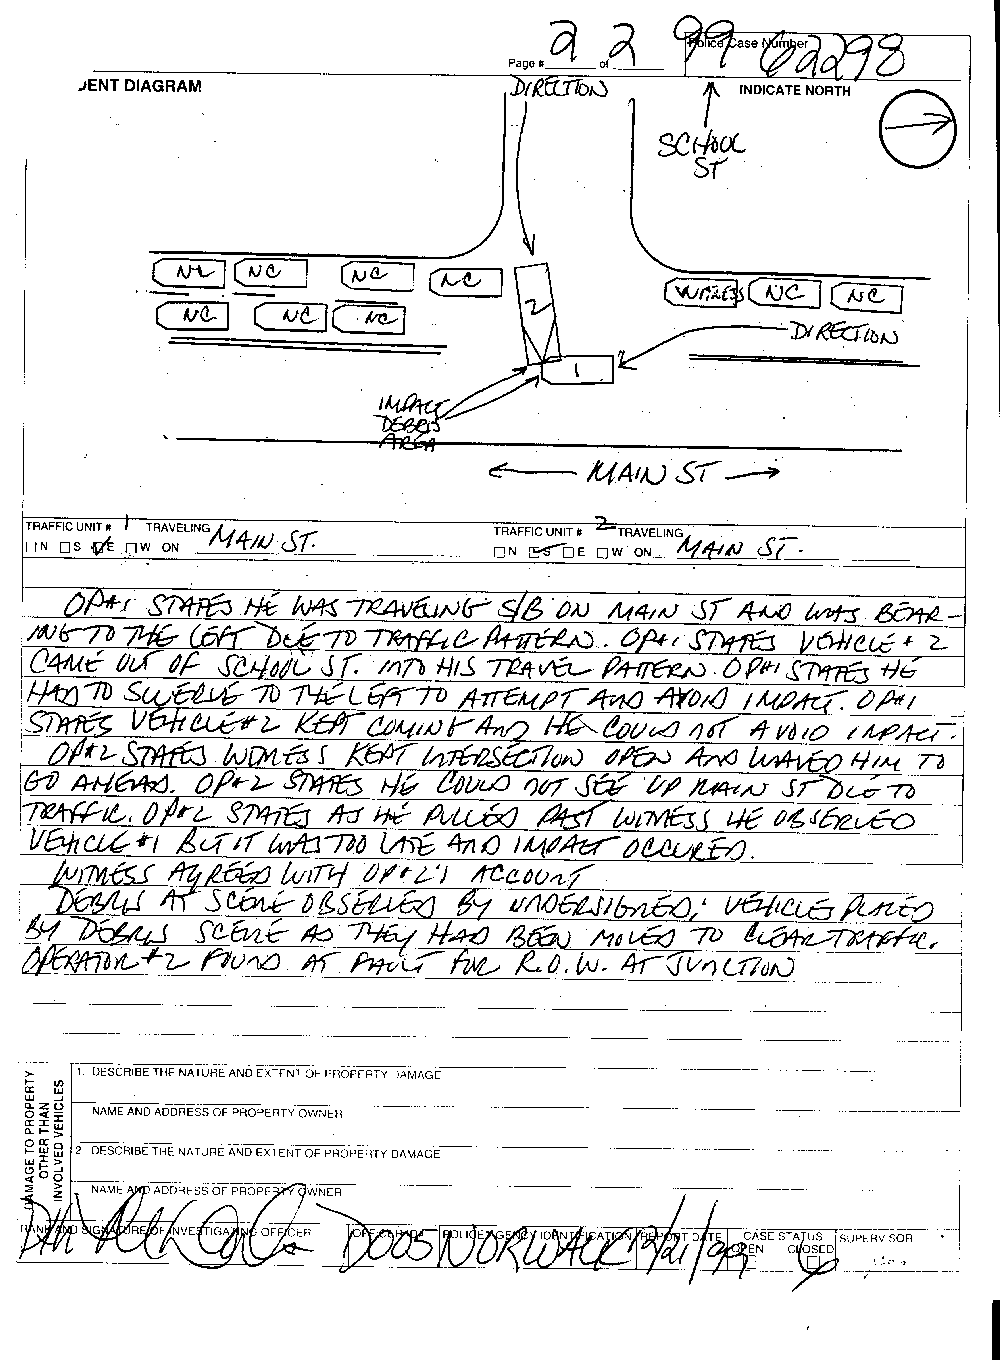 Page # 2 of 2
Police Case Number 99 62298
DENT DIAGRAM
INDICATE NORTH
DIRECTION
SCHOOL
ST
NC NC NC NC
WITNESS NC NC
2
NC NC NC
DIRECTION
1
IMPACT
DEBRIS
AREA
← MAIN ST →
TRAFFIC UNIT # 1 TRAVELING
N S E W ON MAIN ST.
TRAFFIC UNIT # 2 TRAVELING
N S E W ON MAIN ST.
OP#1 STATES HE WAS TRAVELING S/B ON MAIN ST AND WAS BEAR-
ING TO THE LEFT DUE TO TRAFFIC PATTERN. OP#1 STATES VEHICLE # 2
CAME OUT OF SCHOOL ST. INTO HIS TRAVEL PATTERN. OP#1 STATES HE
HAD TO SWERVE TO THE LEFT TO ATTEMPT AND AVOID IMPACT. OP#1
STATES VEHICLE #2 KEPT COMING AND HE COULD NOT AVOID IMPACT.
OP#2 STATES WITNESS KEPT INTERSECTION OPEN AND WAVED HIM TO
GO AHEAD. OP#2 STATES HE COULD NOT SEE UP MAIN ST DUE TO
TRAFFIC. OP#2 STATES AS HE PULLED PAST WITNESS HE OBSERVED
VEHICLE #1 BUT IT WAS TOO LATE AND IMPACT OCCURED.
WITNESS AGREED WITH OP#2'S ACCOUNT
DEBRIS AT SCENE OBSERVED BY UNDERSIGNED; VEHICLES PLACED
BY DEBRIS SCENE AS THEY HAD BEEN MOVED TO CLEAR TRAFFIC.
OPERATOR #2 FOUND AT FAULT FOR R.O.W. AT JUNCTION
DAMAGE TO PROPERTY
OTHER THAN
INVOLVED VEHICLES
1. DESCRIBE THE NATURE AND EXTENT OF PROPERTY DAMAGE
NAME AND ADDRESS OF PROPERTY OWNER
2 DESCRIBE THE NATURE AND EXTENT OF PROPERTY DAMAGE
NAME AND ADDRESS OF PROPERTY OWNER
RANK AND SIGNATURE OF INVESTIGATING OFFICER
D005
POLICE AGENCY IDENTIFICATION NORWALK
REPORT DATE 12/21/99
CASE STATUS
OPEN CLOSED
SUPERVISOR